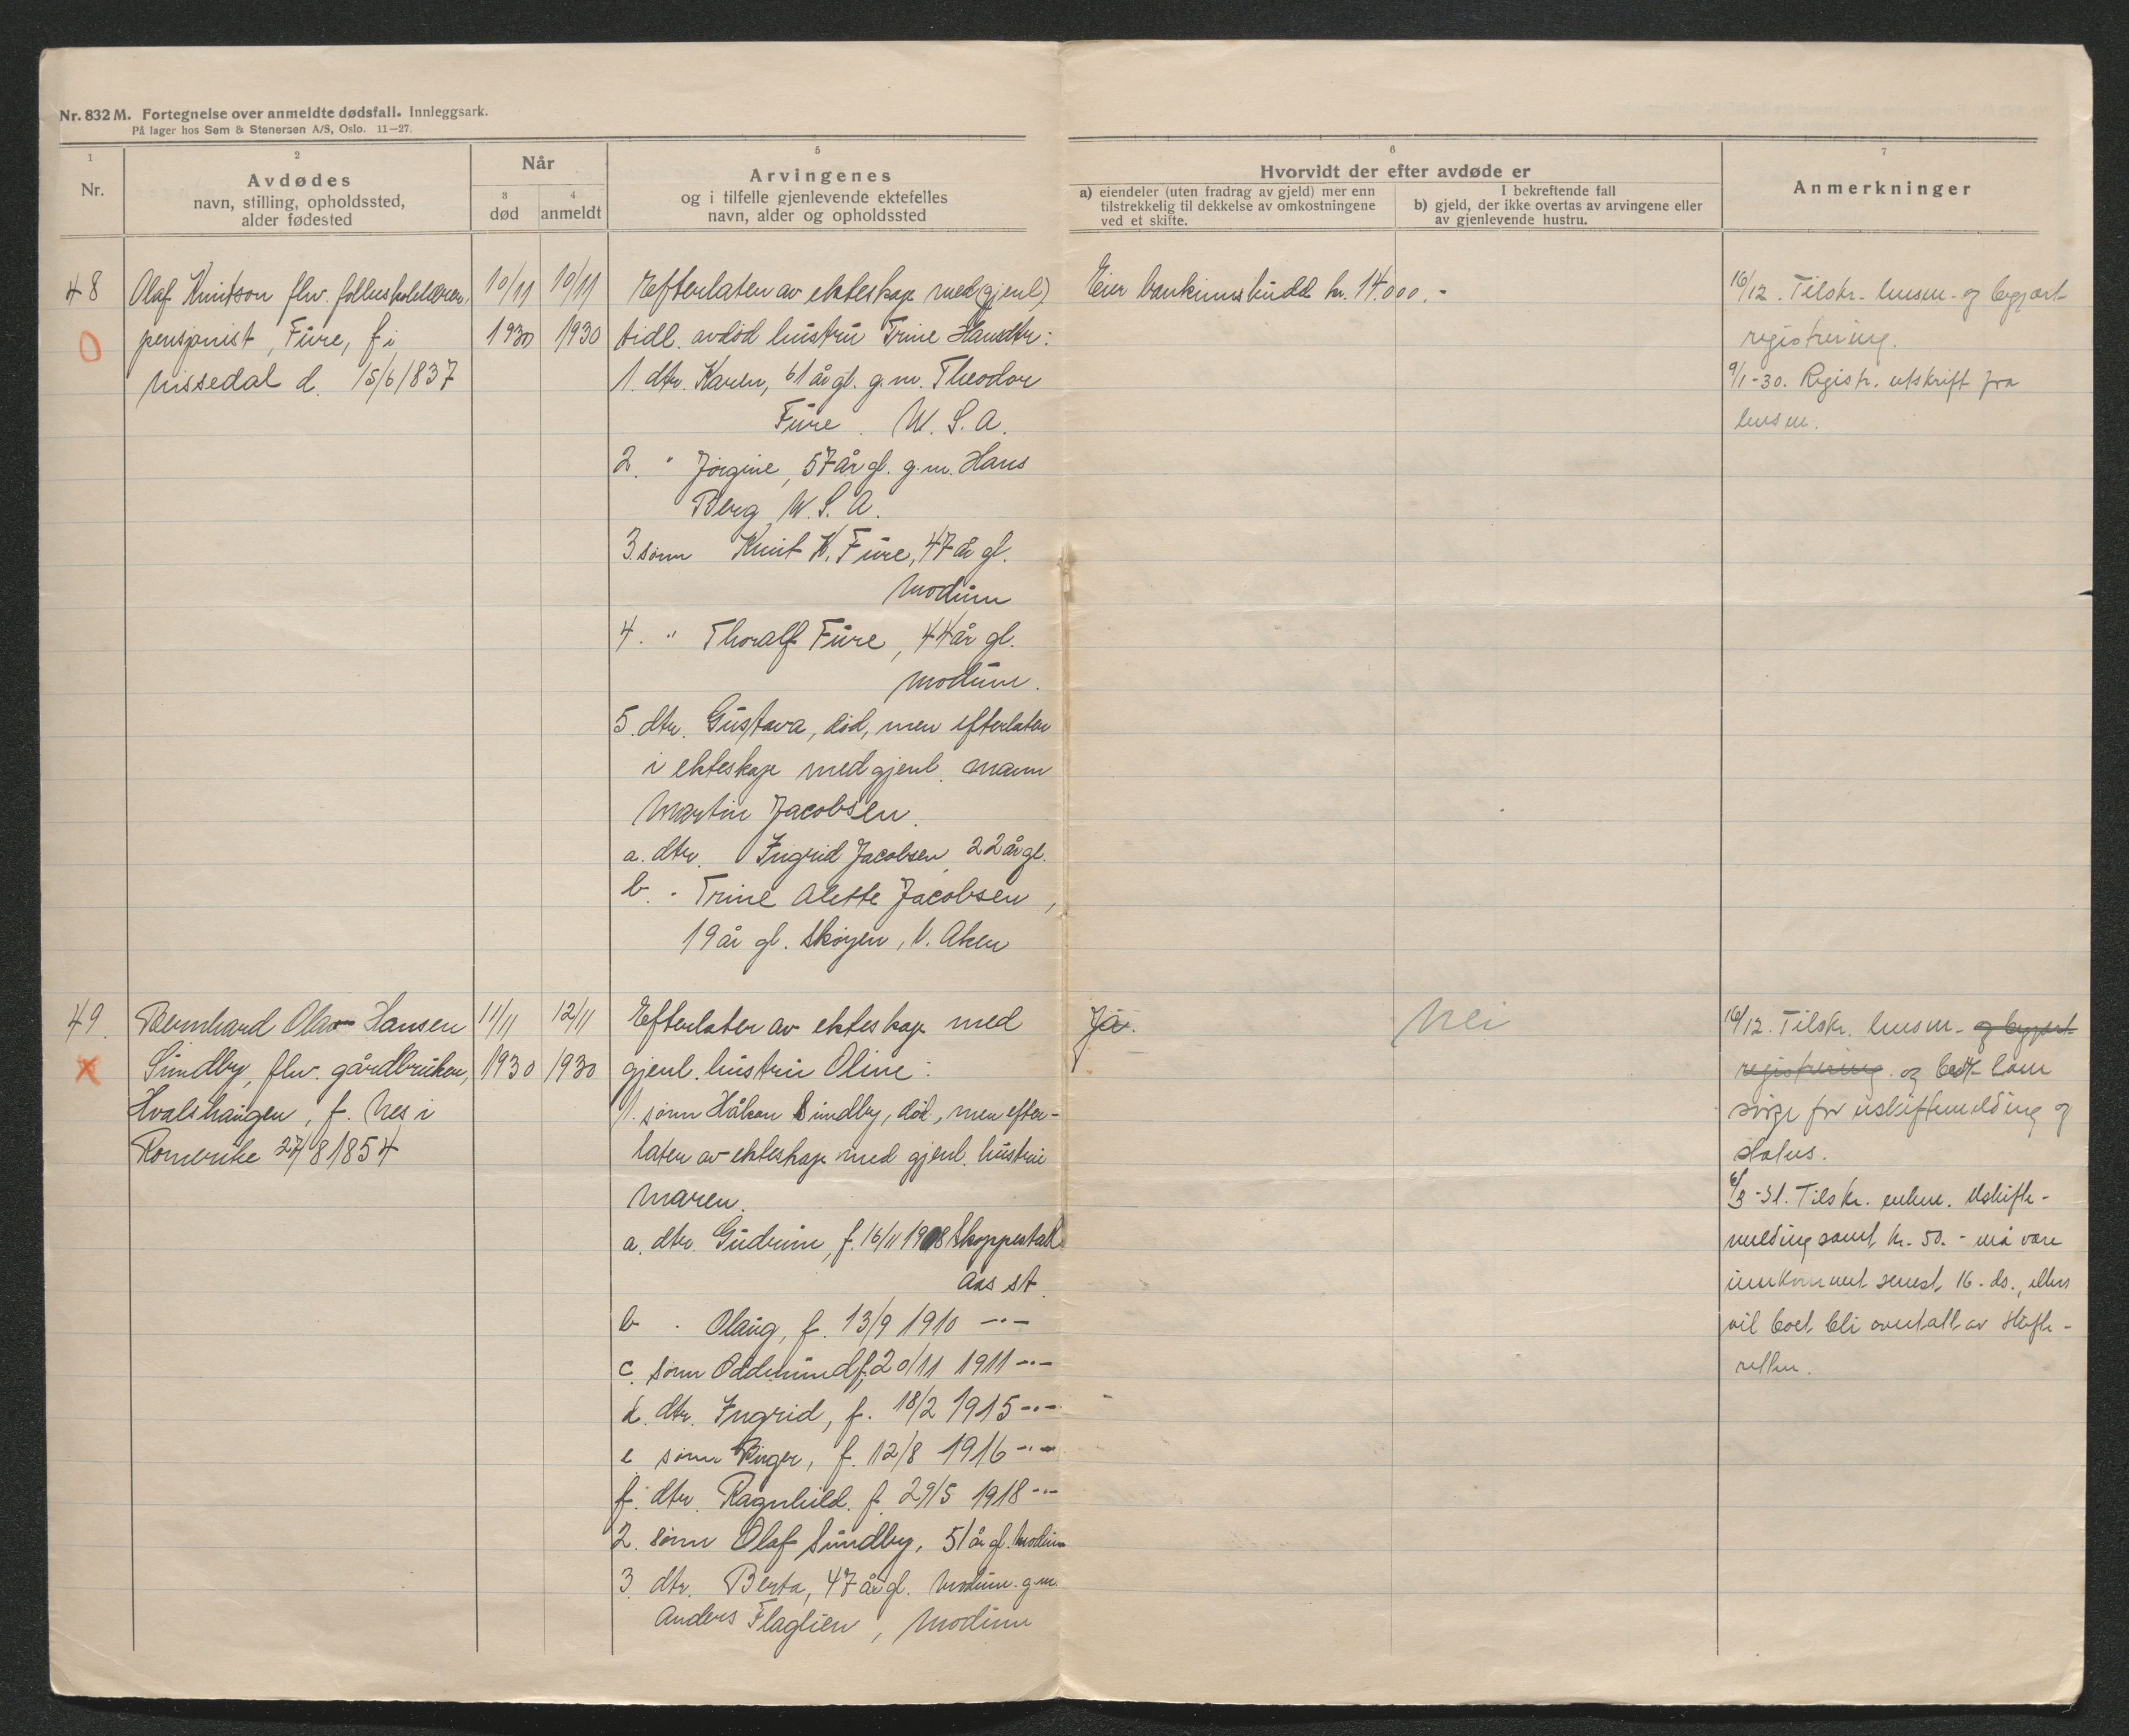 Nr. 832 M. Fortegnelse over anmeldte dødsfall. Innleggsark.
På lager hos Sem & Stenersen A/S, Oslo. 11—27.
1
Nr.
2
Avdødes
navn, stilling, opholdssted,
alder fødested
Når
3
død
4
anmeldt
5
Arvingenes
og i tilfelle gjenlevende ektefelles
navn, alder og opholdssted
6
Hvorvidt der efter avdøde er
a) eiendeler (uten fradrag av gjeld) mer enn
tilstrekkelig til dekkelse av omkostningene
ved et skifte.
I bekreftende fall
b) gjeld, der ikke overtas av arvingene eller
av gjenlevende hustru.
7
Anmerkninger
48
O
Olaf Knutson fhv. folkeskolelærer,
pensjonist, Fure, f i
Nissedal d. 15/6 1837
10/11
1930
10/11
1930
Efterlater av ekteskap med (gjenl)
tidl. avdød hustru Trine Hansdtr:
1. dtr. Karen, 61 år gl. g.m. Theodor
Fure. U. S. A.
2. " Jørgine, 57 år gl. g.m. Hans
Berg U. S. A.
3. sønn Knut K. Fure, 47 år gl.
Modum
4. " Thoralf Fure, 44 år gl.
Modum.
5. dtr. Gustava, død, men efterlater
i ekteskap med gjenl. mann
Martin Jacobsen.
a. dtr. Ingrid Jacobsen 22 år gl.
b. - Trine Alette Jacobsen,
19 år gl. Skøyen, V. Aker
Eier bankinnskudd kr. 14.000.-
16/12. Tilskr. lensm. og begjært
registrering.
9/1-30. Registr. utskrift fra
lensm.
49.
x
Bernhard Olav Hansen
Sundby, fhv. gårdbruker,
Hvalshaugen, f. Nes i
Romerike 27/8 1854
11/11
1930
12/11
1930
Efterlater av ekteskap med
gjenl. hustru Oline:
1. sønn Håkon Sundby, død, men efter-
later av ekteskap med gjenl. hustru
Maren.
a. dtr. Gudrun, f. 16/11 1908 Skoppestad
Aas st.
b - Olaug, f. 13/9 1910 -"-
c. sønn Oddmund f. 20/11 1911 -"-
d. dtr. Ingrid, f. 18/2 1915 -"-
e sønn Birger, f. 12/8 1916 -"-
f. dtr. Ragnhild. f. 29/5 1918 -"-
2. sønn Olaf Sundby, 51 år gl. Modum
3. dtr. Berta, 47 år gl. Modum. g.m.
Anders Flaglien, Modum
Ja.
Nei
16/12. Tilskr. lensm. og begjært
registrering. og bedt ham
sørge for uskiftemelding og
status.
6/3-31. Tilskr. enken. Uskifte-
melding samt kr. 50.- må være
innkommet senest 16. ds., ellers
vil boet bli overtatt av skifte-
retten.